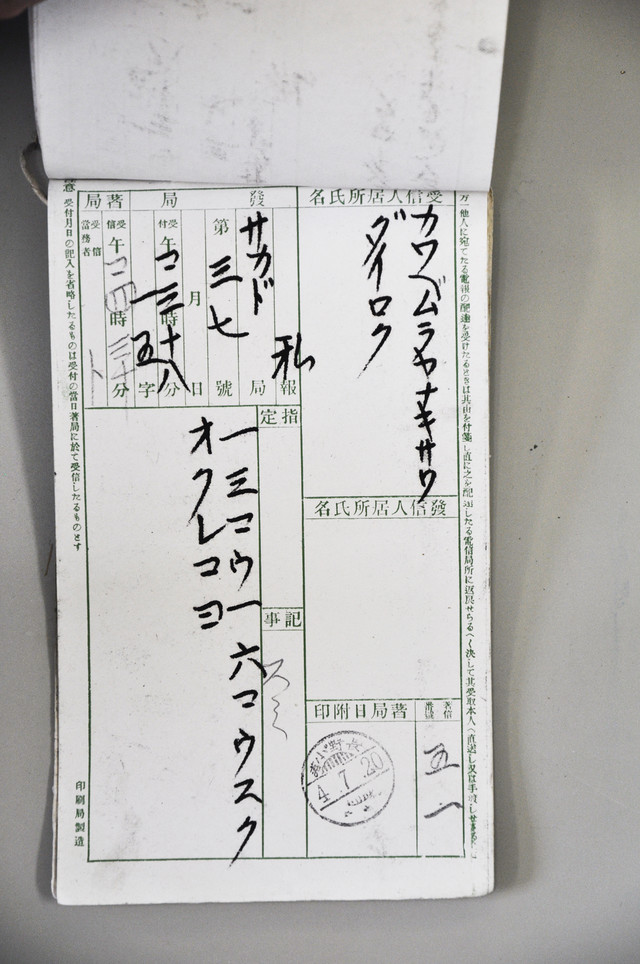 方一他人に宛てたる電報の配達を受けたるときは其由を付箋し直に之を配達したる電信局所に返戻せらるべく決して其受取本人へ直送し又は手渡し
受信人居所氏名
カワベムラヤナキサワ
ダイロク
發信人居所氏名
著信番號
五一
著局日附印
4.7.20
指定
記事
スミ
發局
サカド
局
私報
第三七號
月日
受付午コ一三時三十八分
五字
著局
受信午コ四時三十分
受信當務者
ト
一三コウ一六コウスク
オクレコヨ
意 受付月日の記入を省略したるものは受付の當日著局に於て受信したるものとす
印刷局製造